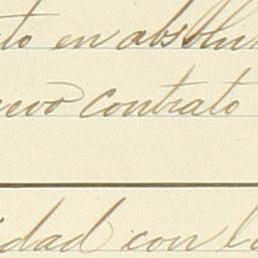 to en absolu
uevo contrato
idad con la